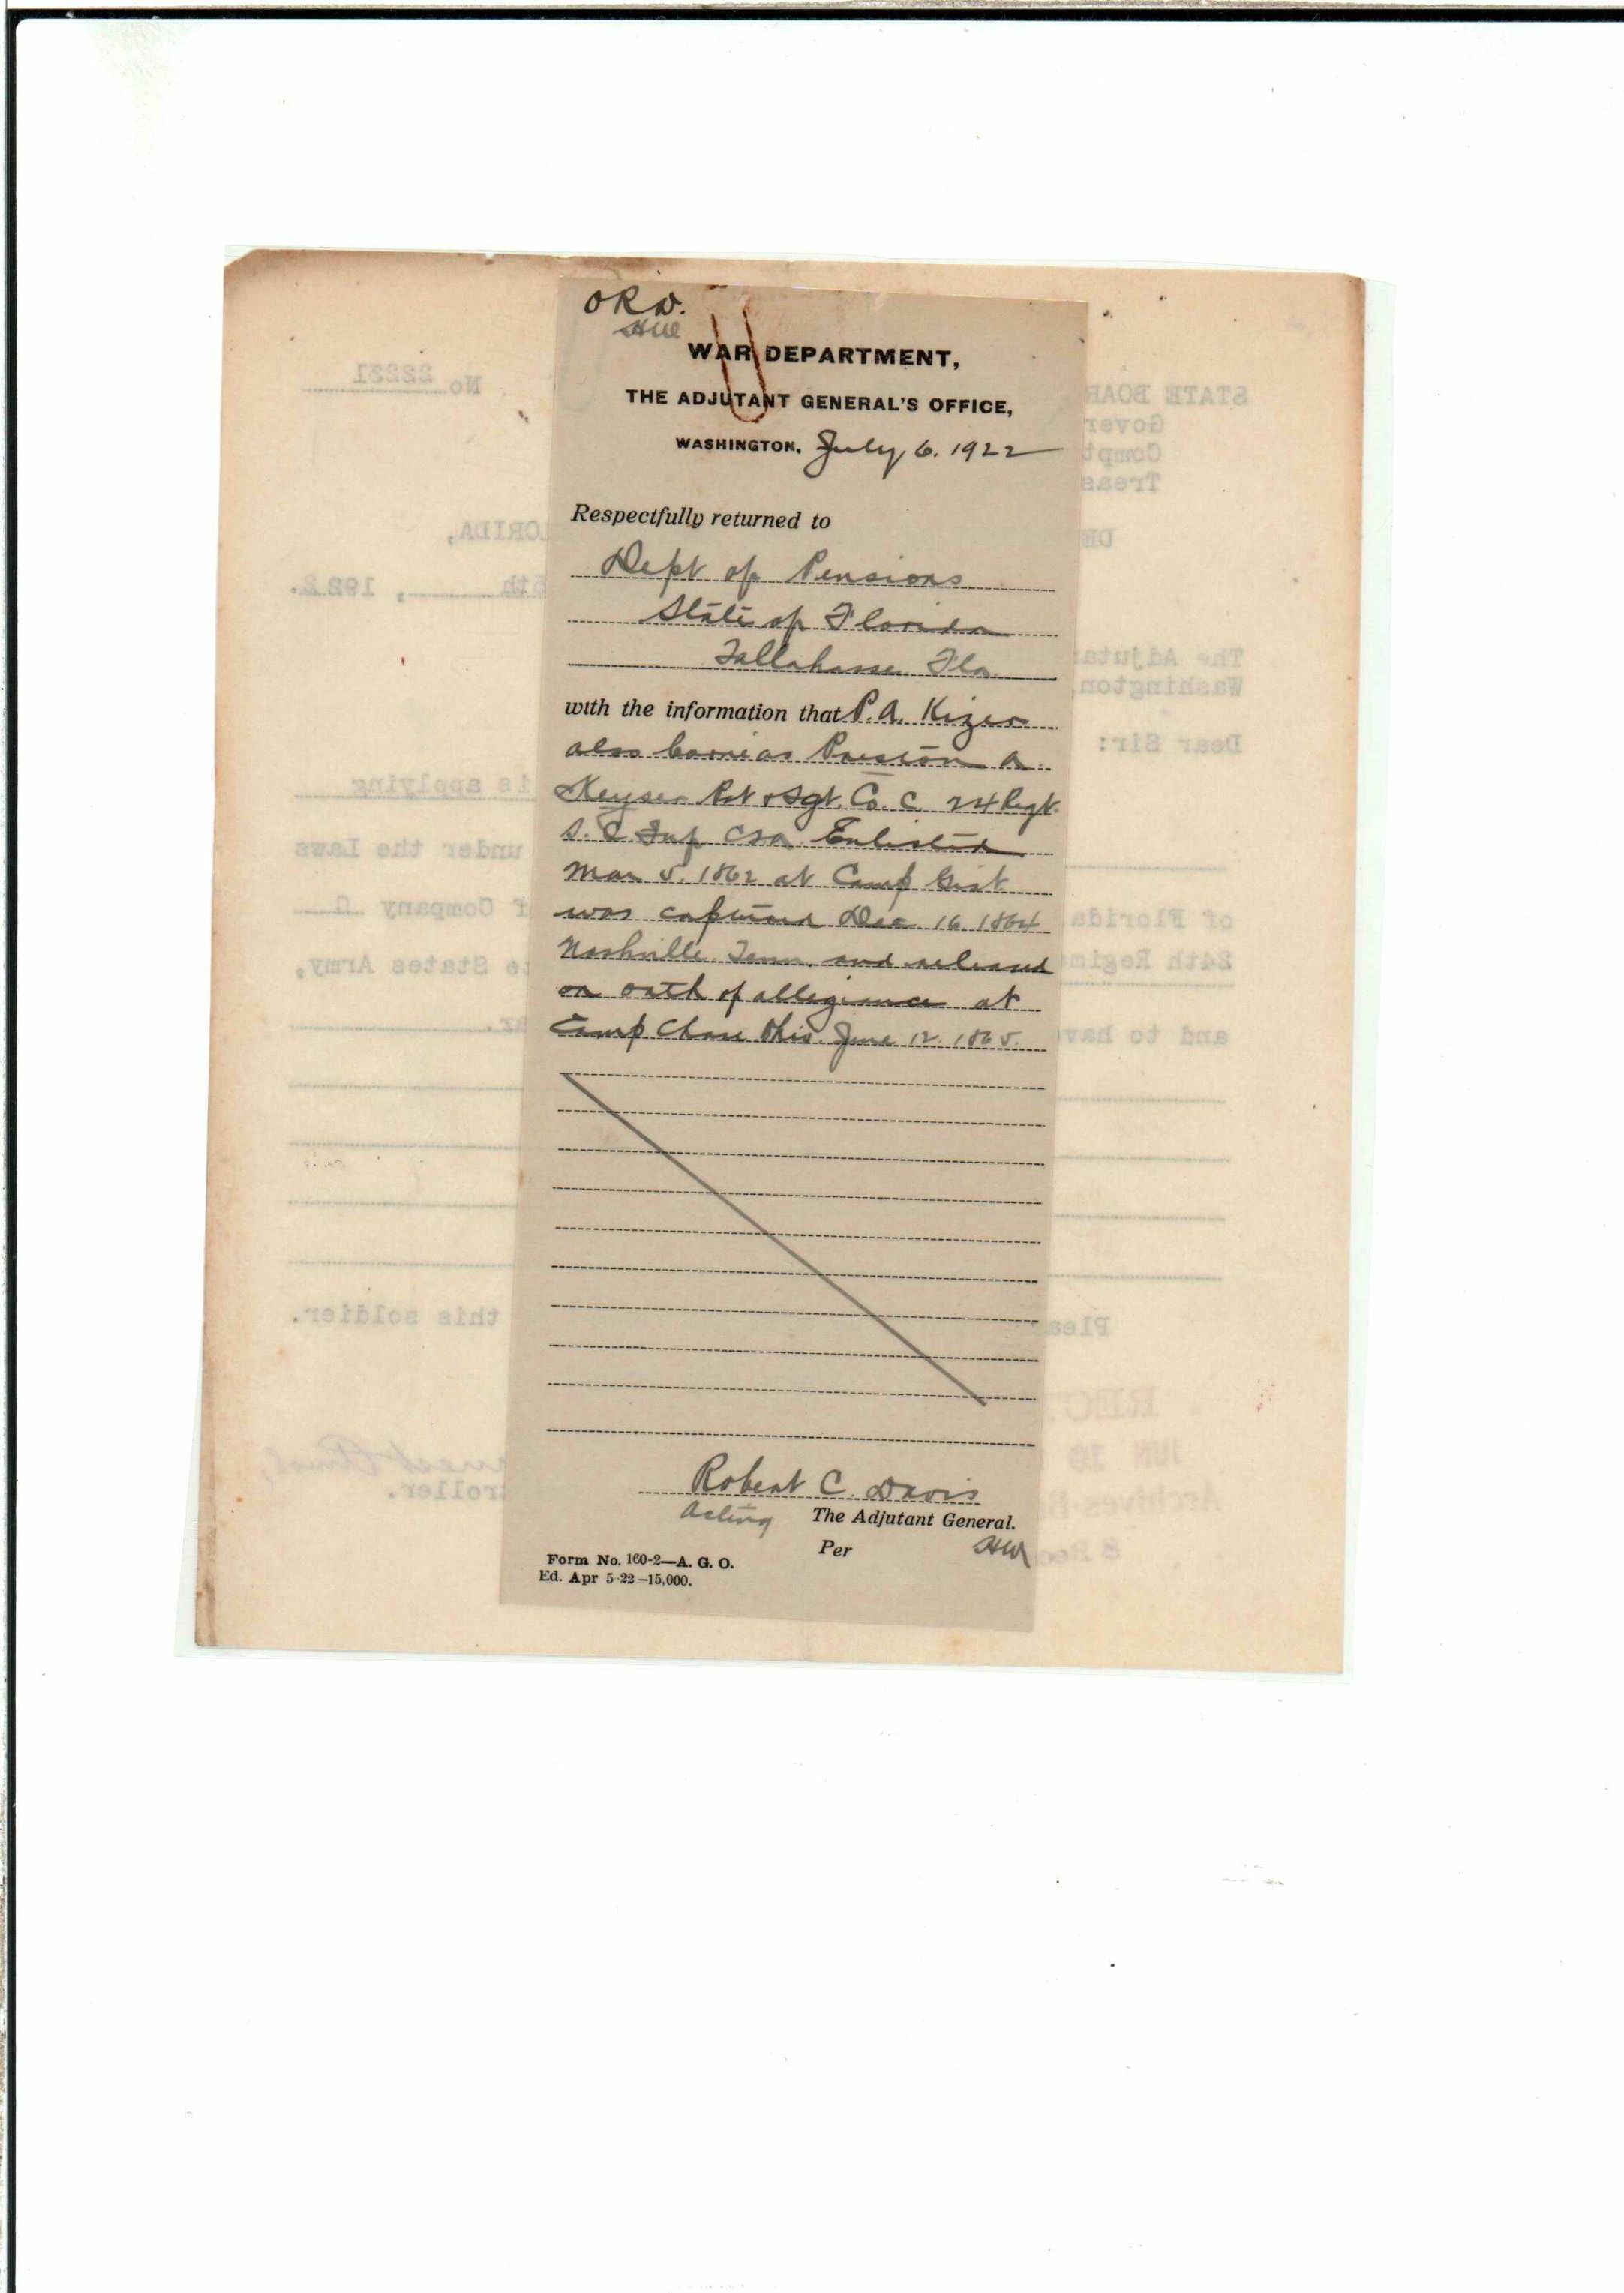 O R D.
HW
WAR DEPARTMENT,
THE ADJUTANT GENERAL'S OFFICE,
WASHINGTON, July 6. 1922
Respectfully returned to
Dept of Pensions
State of Florida
Tallahassee Fla.
with the information that P. A. Kizer
also borne as Preston A.
Keyser Pvt & Sgt. Co. C 24 Regt.
S. C Inf CSA Enlisted
Mar 5. 1862 at Camp Gist
was captured Dec. 16 1864
Nashville. Tenn. and released
on oath of allegiance at
Camp Chase Ohio. June 12. 1865.
Robert C. Davis
Acting The Adjutant General.
Per HW
Form No. 160-2—A. G. O.
Ed. Apr 5-22—15,000.
No 22231
STATE BOAR
Gover
Compt
Treas
DE
LORIDA,
5th , 1922.
The Adjutan
Washington,
Dear Sir:
is applying
under the Laws
of Florida
f Company C
24th Regim
te States Army,
and to have
ar.
Pleas
this soldier.
REC
JUN 10
Archives
troller.